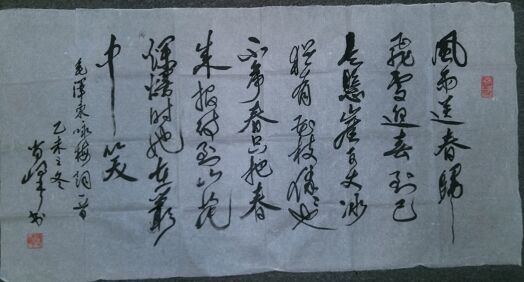 風雨送春歸
飛雪迎春到已
是懸崖百丈冰
猶有花枝俏俏也
不争春只把春
来報時到山花
爛漫時她在叢
中笑
毛澤東咏梅詞一首
乙未之冬
峰书